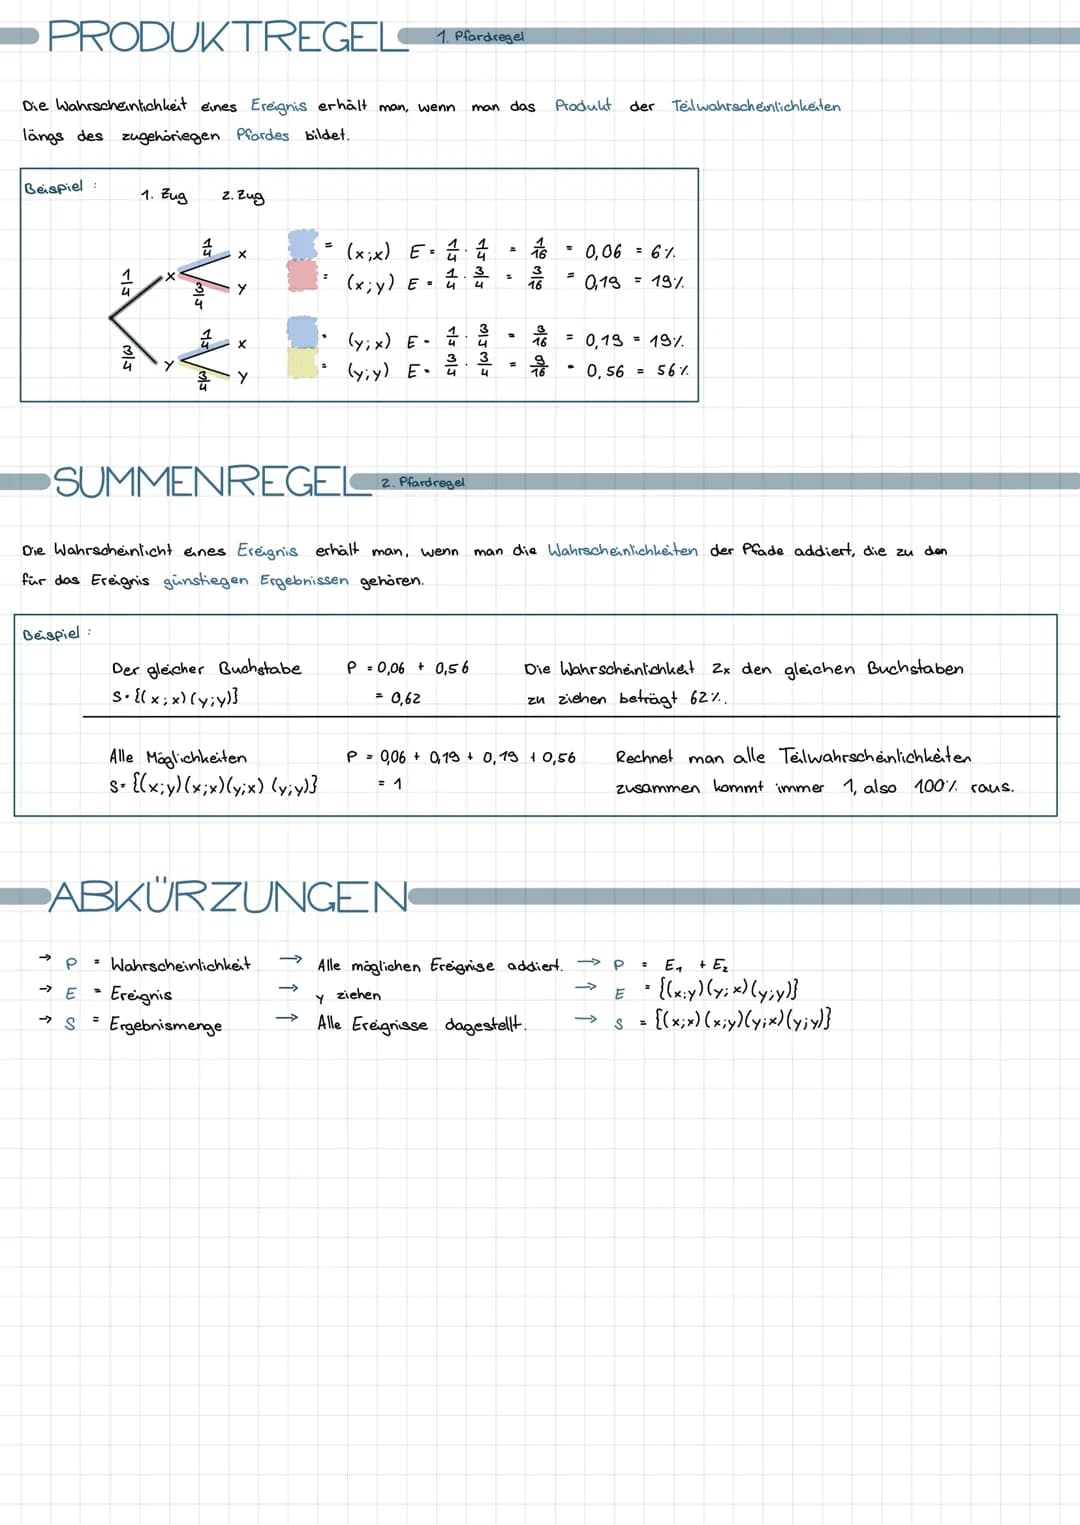 PRODUKTREGEL 1. Pfardregel
Die Wahrscheinlichkeit eines Ereignis erhält man, wenn man das Produkt der Teilwahrscheinlichkeiten
längs des zugehöriegen Pfardes bildet.
Beispiel :
1. Zug 2. Zug
1/4 x 1/4 x = (x;x) E = 1/4 · 1/4 = 1/16 = 0,06 = 6%
3/4 y = (x;y) E = 1/4 · 3/4 = 3/16 = 0,19 = 19%
3/4 y 1/4 x = (y;x) E = 1/4 · 3/4 = 3/16 = 0,19 = 19%
3/4 y = (y;y) E = 3/4 · 3/4 = 9/16 = 0,56 = 56%
SUMMENREGEL 2. Pfardregel
Die Wahrscheinlicht eines Ereignis erhält man, wenn man die Wahrscheinlichkeiten der Pfade addiert, die zu den
für das Ereignis günstiegen Ergebnissen gehören.
Beispiel :
Der gleicher Buchstabe P = 0,06 + 0,56 Die Wahrscheinlichkeit 2x den gleichen Buchstaben
S = {(x;x)(y;y)} = 0,62 zu ziehen beträgt 62%.
Alle Möglichkeiten P = 0,06 + 0,19 + 0,19 + 0,56 Rechnet man alle Teilwahrscheinlichkeiten
S = {(x;y)(x;x)(y;x)(y;y)} = 1 zusammen kommt immer 1, also 100% raus.
ABKÜRZUNGEN
→ P = Wahrscheinlichkeit → Alle möglichen Ereignise addiert. → P = E₁ + E₂
→ E = Ereignis → y ziehen → E = {(x;y)(y;x)(y;y)}
→ S = Ergebnismenge → Alle Ereignisse dagestellt. → S = {(x;x)(x;y)(y;x)(y;y)}